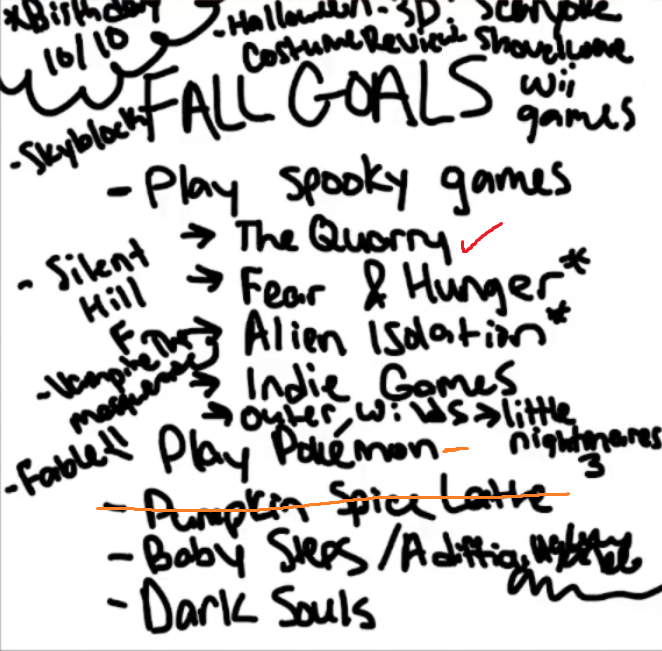 *Birthday
10/10
-Halloween - 3D.
Costume Review Shovelware
Wii
games
FALL GOALS
-Skyblock
- Play spooky games
→ The Quarry ✓
- Silent
Hill
F
→ Fear & Hunger*
→ Alien Isolation*
-Vampire The
masquerade
→ Indie Games
→ outer wilds → little
nightmares
3
-Fable II
Play Pokémon -
- Pumpkin Spice Latte
- Baby Steps /
- Dark Souls